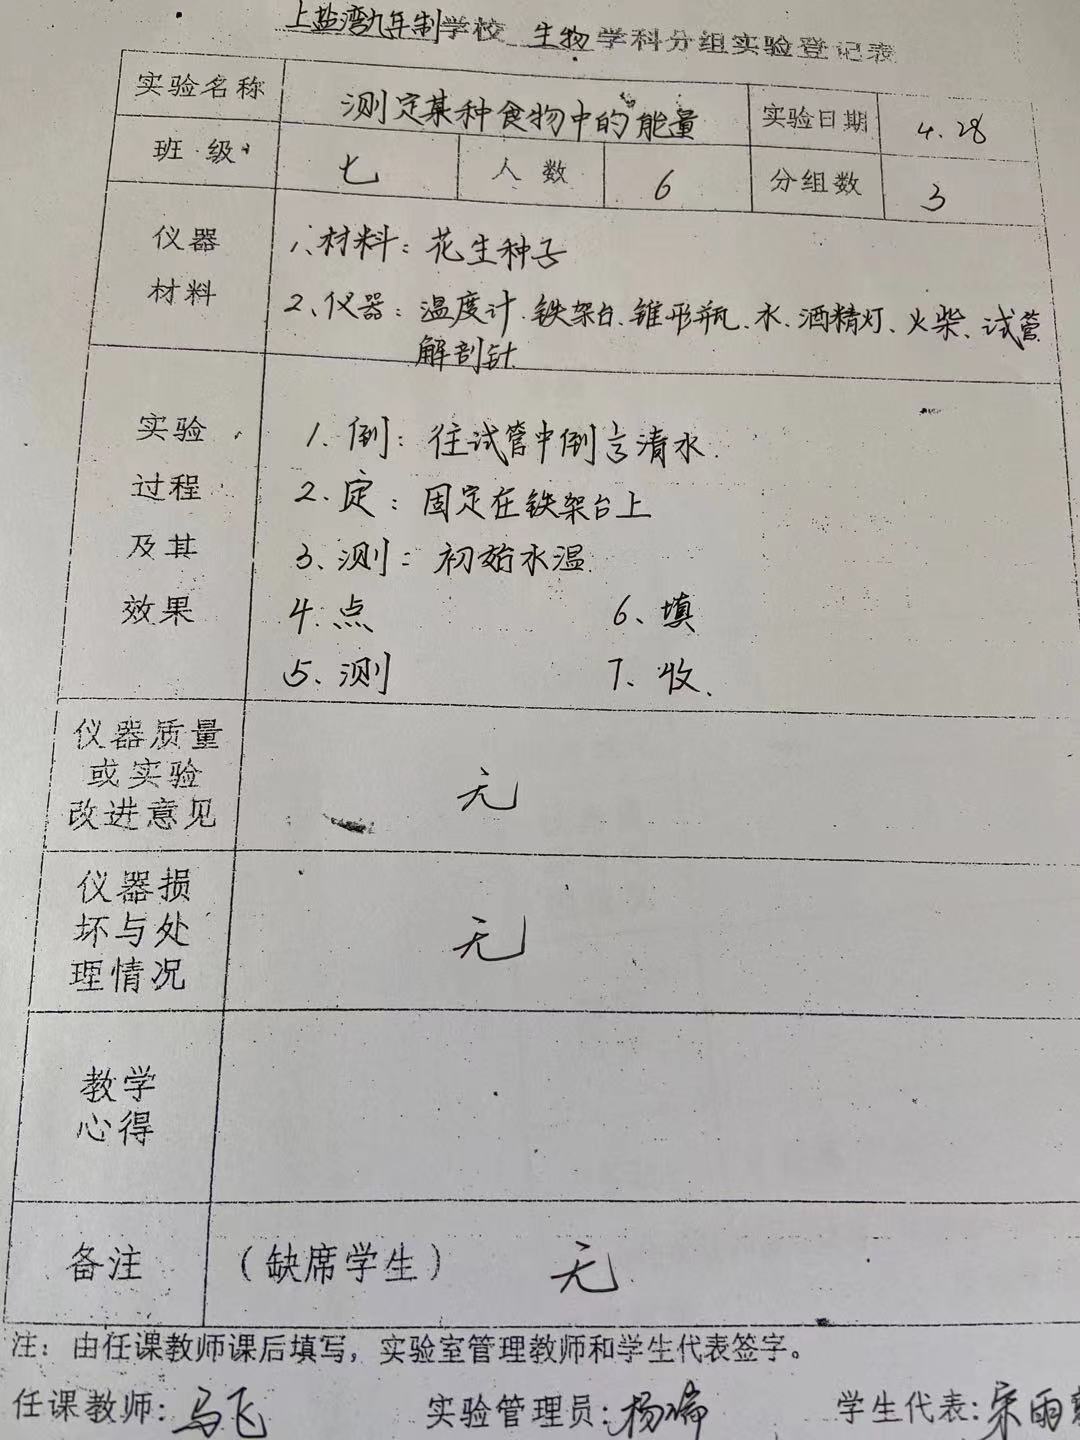 上盐湾九年制学校 生物学科分组实验登记表
实验名称 测定某种食物中的能量 实验日期 4.28
班级 七 人数 6 分组数 3
仪器材料
1、材料：花生种子
2、仪器：温度计、铁架台、锥形瓶、水、酒精灯、火柴、试管
解剖针
实验过程及其效果
1. 倒：往试管中倒清水.
2. 定：固定在铁架台上
3、测：初始水温
4. 点 6、填
5、测 7、收.
仪器质量
或实验
改进意见
无
仪器损
坏与处
理情况
无
教学
心得
备注 （缺席学生） 无
注：由任课教师课后填写，实验室管理教师和学生代表签字。
任课教师：马飞 实验管理员：杨 学生代表：宋雨